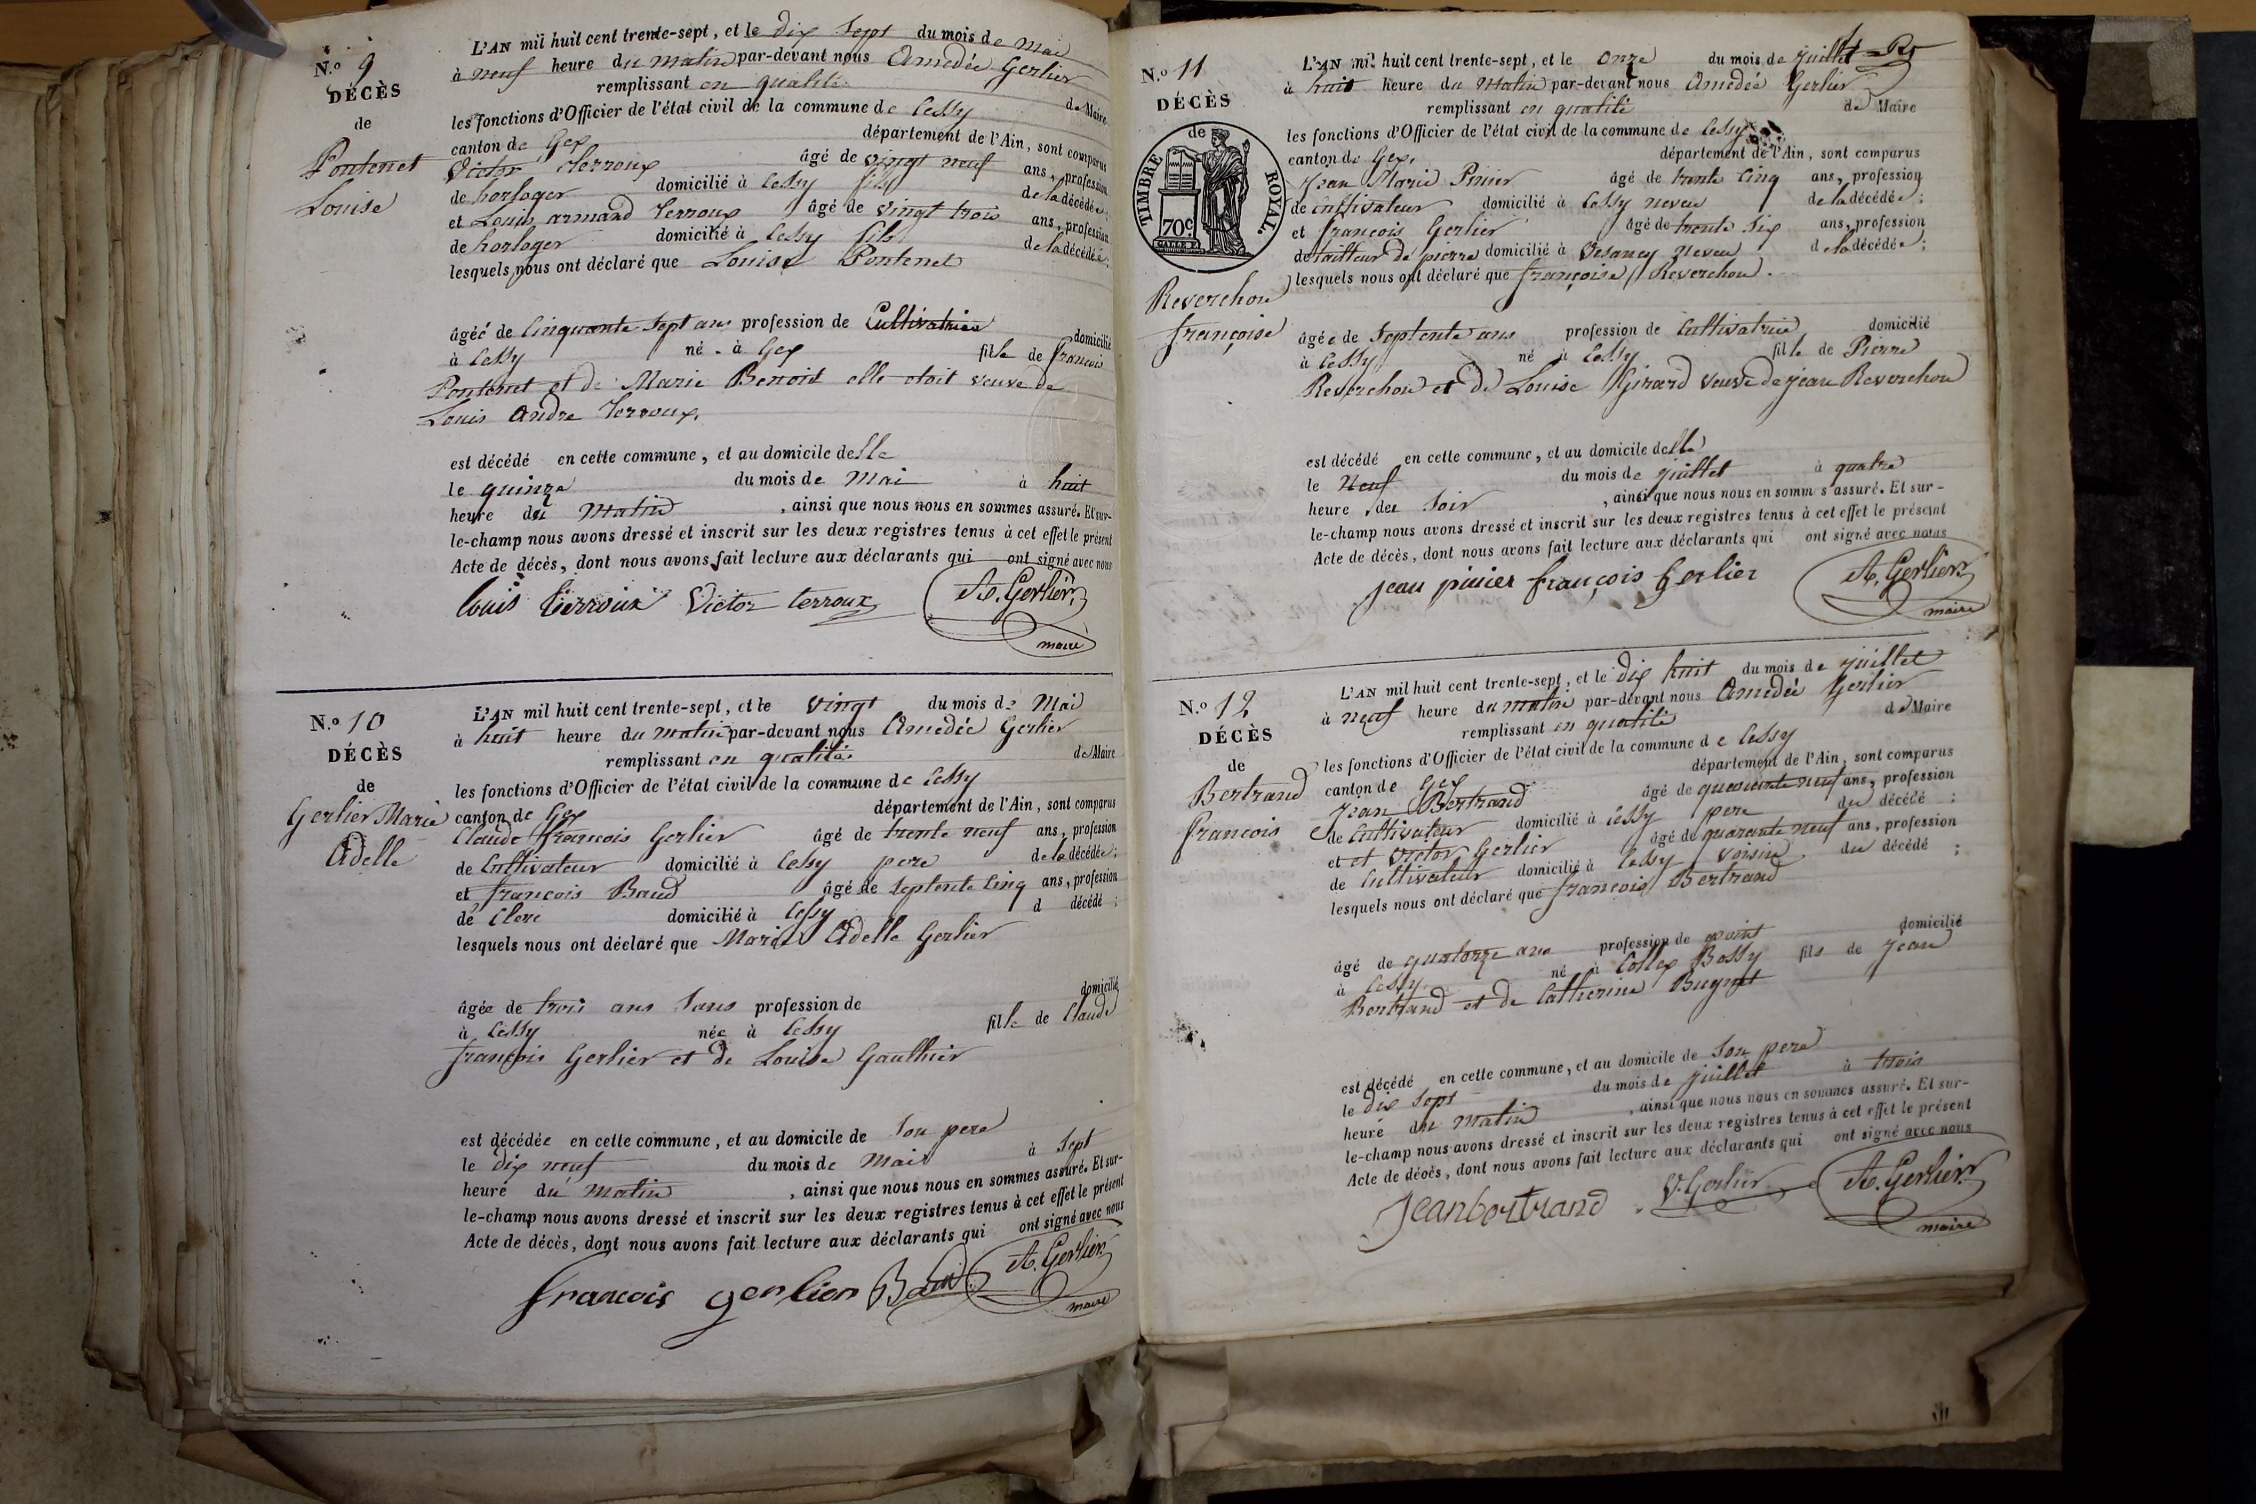 N.º 9
DÉCÈS
de
Pontenet
Louise
L'AN mil huit cent trente-sept, et le dix sept du mois de Mai
à neuf heure du matin par-devant nous Amedée Gerlier
remplissant en qualité de Maire
les fonctions d'Officier de l'état civil de la commune de Cessy
canton de Gex département de l'Ain, sont comparus
Victor Terroux âgé de vingt neuf ans, profession
de horloger domicilié à Cessy fils de la décédée;
et Louis armand Terroux âgé de vingt trois ans, profession
de horloger domicilié à Cessy fils de la décédée;
lesquels nous ont déclaré que Louise Pontenet
âgée de Cinquante Sept ans profession de Cultivatrice domicilié
à Cessy né à Gex fille de francois
Pontenet et de Marie Benoit elle etoit veuve de
Louis Andre Terroux.
est décédé en cette commune, et au domicile delle
le quinze du mois de Mai à huit
heure du Matin, ainsi que nous nous en sommes assuré. Et sur-
le-champ nous avons dressé et inscrit sur les deux registres tenus à cet effet le présent
Acte de décès, dont nous avons fait lecture aux déclarants qui ont signé avec nous
Louis Terroux Victor terroux A. Gerlier
maire
N.º 10
DÉCÈS
de
Gerlier Marie
Adelle
L'AN mil huit cent trente-sept, et le vingt du mois de Mai
à huit heure du matin par-devant nous Amedée Gerlier
remplissant en qualité de Maire
les fonctions d'Officier de l'état civil de la commune de Cessy
canton de Gex département de l'Ain, sont comparus
Claude francois Gerlier âgé de trente neuf ans, profession
de Cultivateur domicilié à Cessy pere de la décédée;
et francois Baud âgé de Septente Cinq ans, profession
de Clerc domicilié à Cessy d décédé;
lesquels nous ont déclaré que Marie Adelle Gerlier
âgée de trois ans Sans profession de domicilié
à Cessy née à Cessy fille de Claude
françois Gerlier et de Louise Gaulthier
est décédée en cette commune, et au domicile de Son pere
le dix neuf du mois de Mai à Sept
heure du matin, ainsi que nous nous en sommes assuré. Et sur-
le-champ nous avons dressé et inscrit sur les deux registres tenus à cet effet le présent
Acte de décès, dont nous avons fait lecture aux déclarants qui ont signé avec nous
francois gerlier Baud A. Gerlier
maire
N.º 11
DÉCÈS
de
TIMBRE ROYAL.
70c
Reverchon
françoise
L'AN mil huit cent trente-sept, et le onze du mois de juillet
à huit heure du Matin par-devant nous Amedée Gerlier
remplissant en qualité de Maire
les fonctions d'Officier de l'état civil de la commune de Cessy
canton de Gex, département de l'Ain, sont comparus
Jean Marie Pinier âgé de trente cinq ans, profession
de cultivateur domicilié à Cessy neveu de la décédée;
et françois Gerlier âgé de trente Six ans, profession
de tailleur de pierre domicilié à Vesancy Neveu de la décédée;
lesquels nous ont déclaré que françoise Reverchon.
âgée de Septente ans profession de Cultivatrice domicilié
à Cessy né à Cessy fille de Pierre
Reverchon et de Louise Girard veuve de jean Reverchon
est décédé en cette commune, et au domicile delle
le Neuf du mois de juillet à quatre
heure du Soir, ainsi que nous nous en somm s assuré. Et sur-
le-champ nous avons dressé et inscrit sur les deux registres tenus à cet effet le présent
Acte de décès, dont nous avons fait lecture aux déclarants qui ont signé avec nous
jean pinier françois Gerlier A. Gerlier
maire
N.º 12
DÉCÈS
de
Bertrand
francois
L'AN mil huit cent trente-sept, et le dix huit du mois de juillet
à neuf heure du matin par-devant nous Amedée Gerlier
remplissant en qualité de Maire
les fonctions d'Officier de l'état civil de la commune de Cessy
canton de Gex département de l'Ain, sont comparus
Jean Bertrand âgé de quarante neuf ans, profession
de Cultivateur domicilié à Cessy pere du décédé;
et et Victor Gerlier âgé de quarante neuf ans, profession
de Cultivateur domicilié à Cessy voisin du décédé;
lesquels nous ont déclaré que francois Bertrand
âgé de quatorze ans profession de point domicilié
à Cessy né à Collex Bossy fils de Jean
Bertrand et de Catherine Bugnet
est décédé en cette commune, et au domicile de Son pere
le dix Sept du mois de juillet à trois
heure du matin, ainsi que nous nous en sommes assuré. Et sur-
le-champ nous avons dressé et inscrit sur les deux registres tenus à cet effet le présent
Acte de décès, dont nous avons fait lecture aux déclarants qui ont signé avec nous
Jean bertrand V. Gerlier A. Gerlier
maire